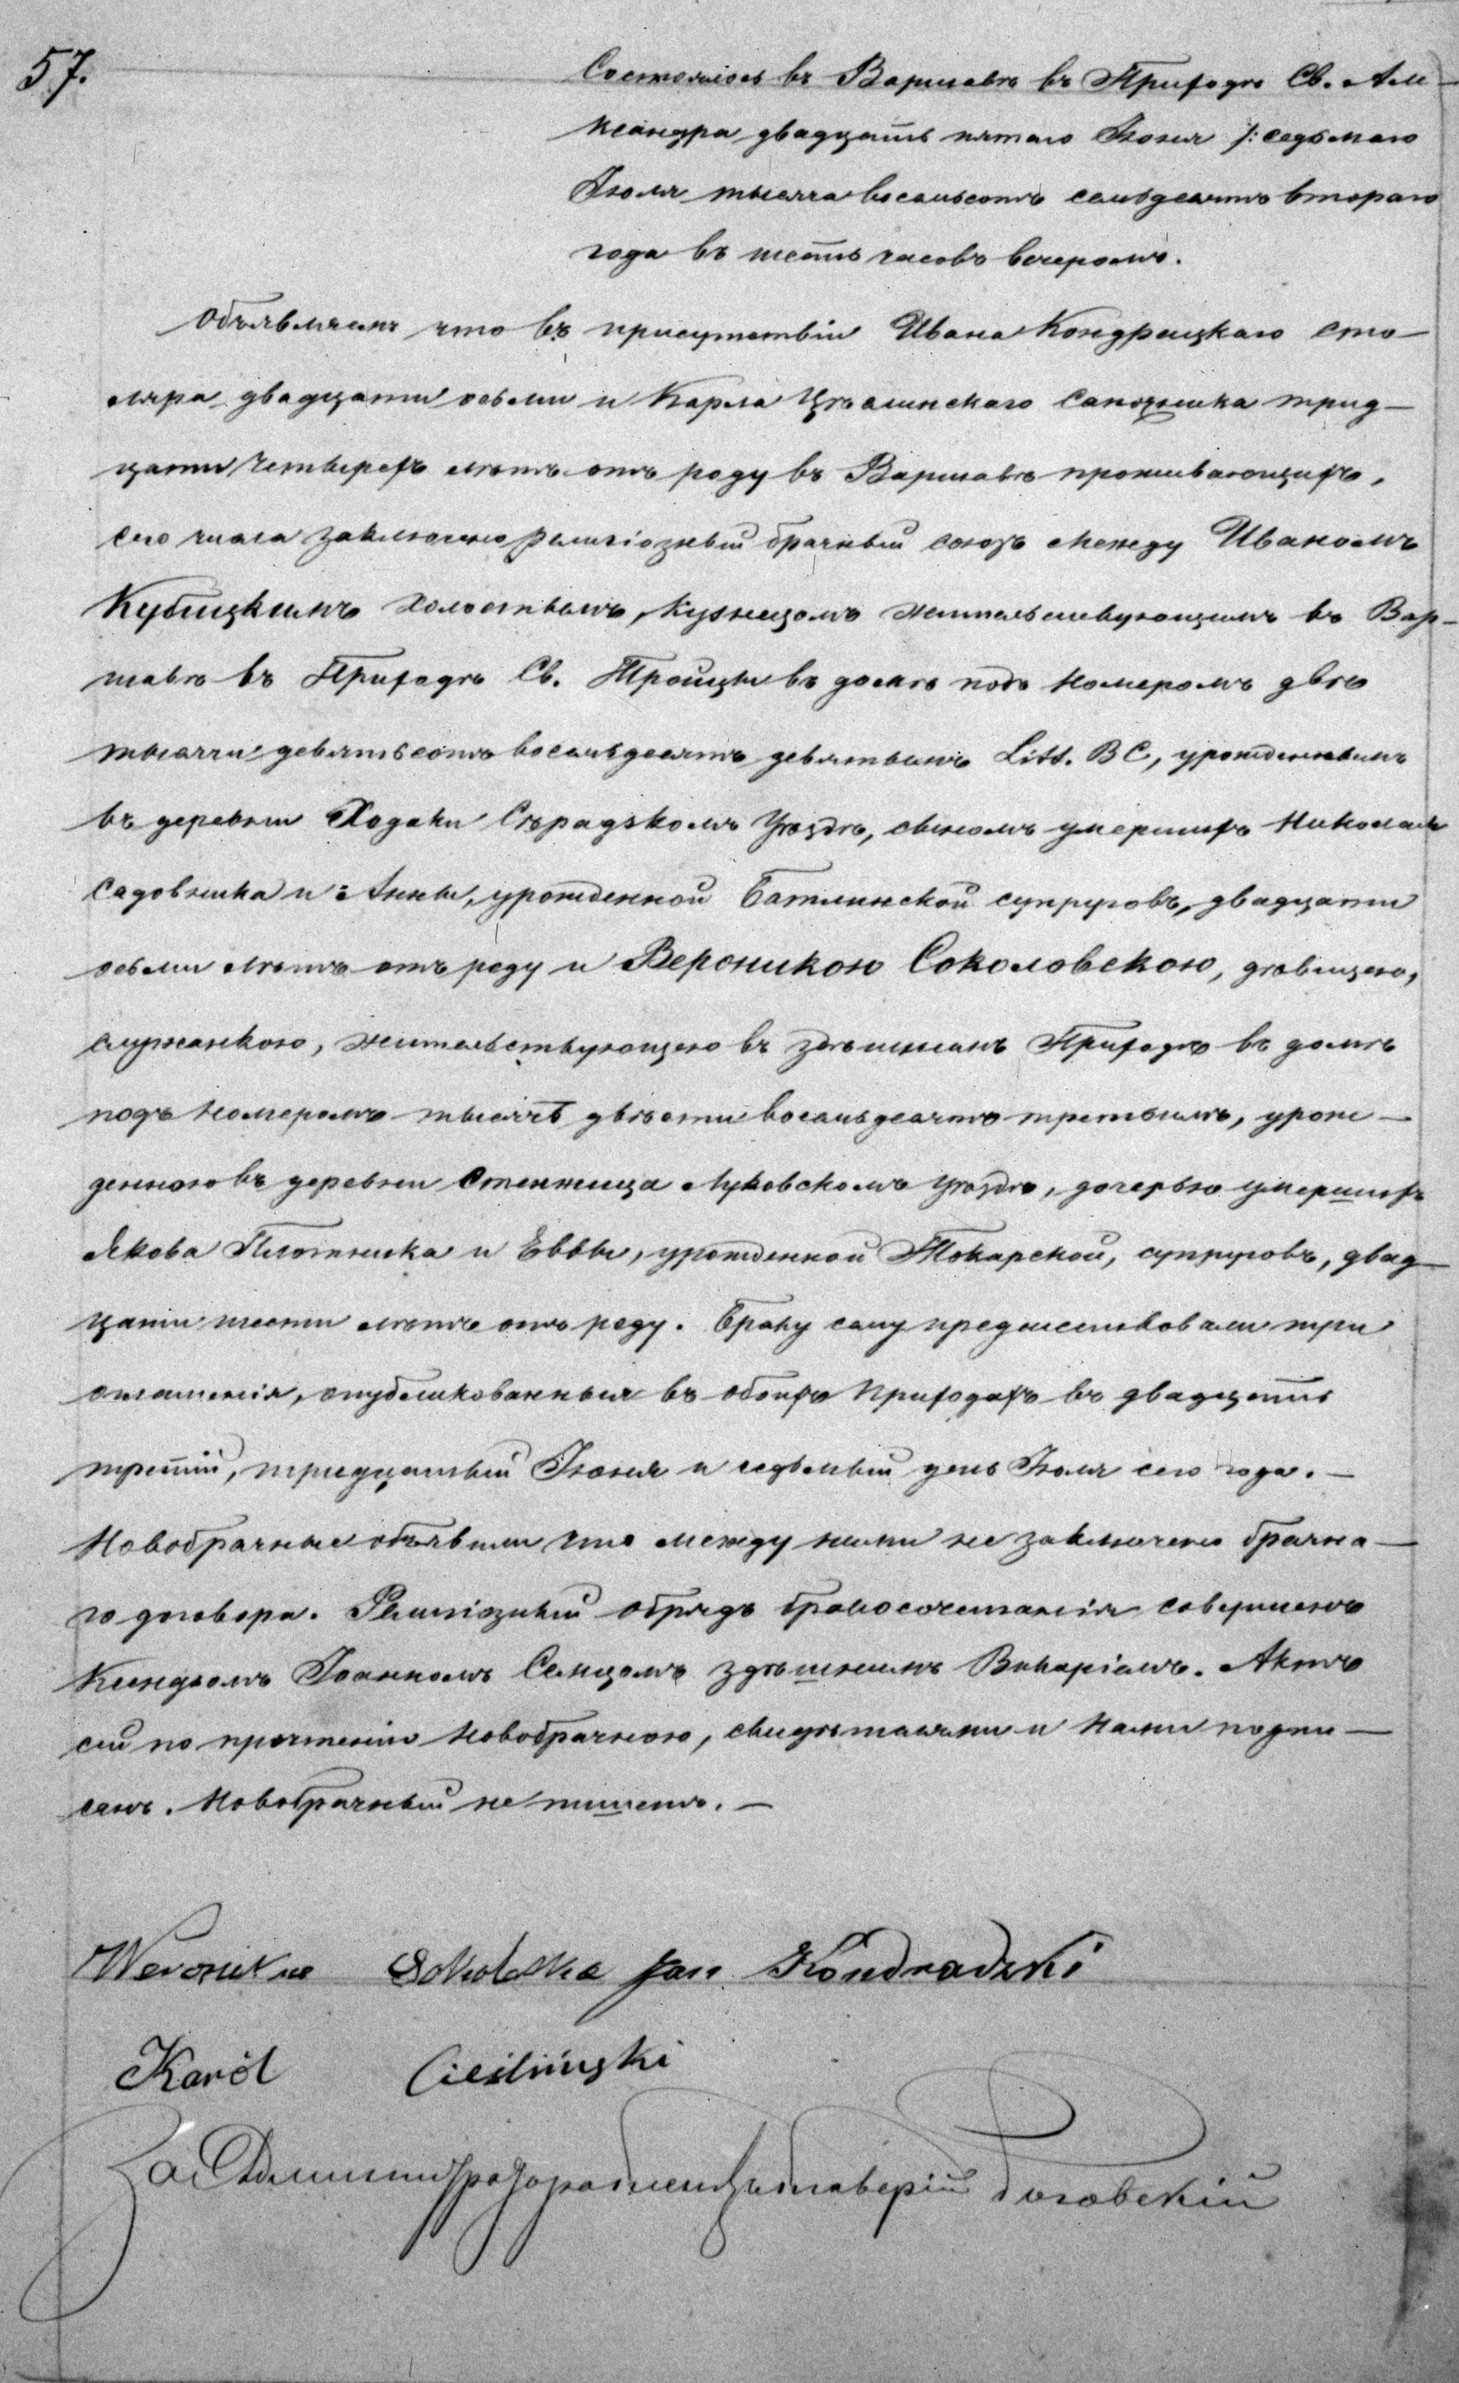 57.
Состоялось въ Варшавѣ въ Приходѣ Св. Але-
ксандра двадцать пятаго Іюня /: седьмаго
Іюля тысяча восемьсотъ семьдесятъ втораго
года въ шесть часовъ вечеромъ.
Объявляемъ что въ присутствіи Ивана Кондрацкаго сто-
ляра двадцати осьми и Карла Цѣслинскаго сапожника трид-
цати четырехъ лѣтъ отъ роду въ Варшавѣ проживающихъ,
сего числа заключенъ религіозный брачный союзъ между Иваномъ
Кубицкимъ холостымъ, кузнецомъ жительствующимъ въ Вар-
шавѣ въ Приходѣ Св. Троицы въ домѣ подъ номеромъ двѣ
тысячи девятьсотъ восемьдесятъ девятымъ Litt. B C, урожденнымъ
въ деревни Ходаки Сѣрадзкомъ Уѣздѣ, сыномъ умершихъ Николая
садовника и Анны, урожденной Батлинской супруговъ, двадцати
осьми лѣтъ отъ роду и Вероникою Соколовскою, дѣвицею,
служанкою, жительствующею въ здѣшнемъ Приходѣ въ домѣ
подъ номеромъ тысяча двѣсти восемьдесятъ третьимъ, урож-
денною въ деревни Стенжица Луковскомъ Уѣздѣ, дочерью умершихъ
Якова Плотника и Еввы, урожденной Токарской, супруговъ, двад-
цати шести лѣтъ отъ роду. Браку сему предшествовали три
оглашенія, опубликованныя въ обоихъ Приходахъ въ двадцать
третій, тридцатый Іюня и седьмый день Іюля сего года. —
Новобрачные объявили что между ними не заключено брачна-
го договора. Религіозный обрядъ бракосочетанія совершенъ
Ксендзомъ Іоанномъ Сенцомъ здѣшнимъ Викаріемъ. Актъ
сей по прочтеніи новобрачною, свидѣтелями и Нами подпи-
санъ. Новобрачный не пишетъ. —
Weronika Sokolska Jan Kondradzki
Karól Cieśliński
За Администратора Ксендзъ Роговскій